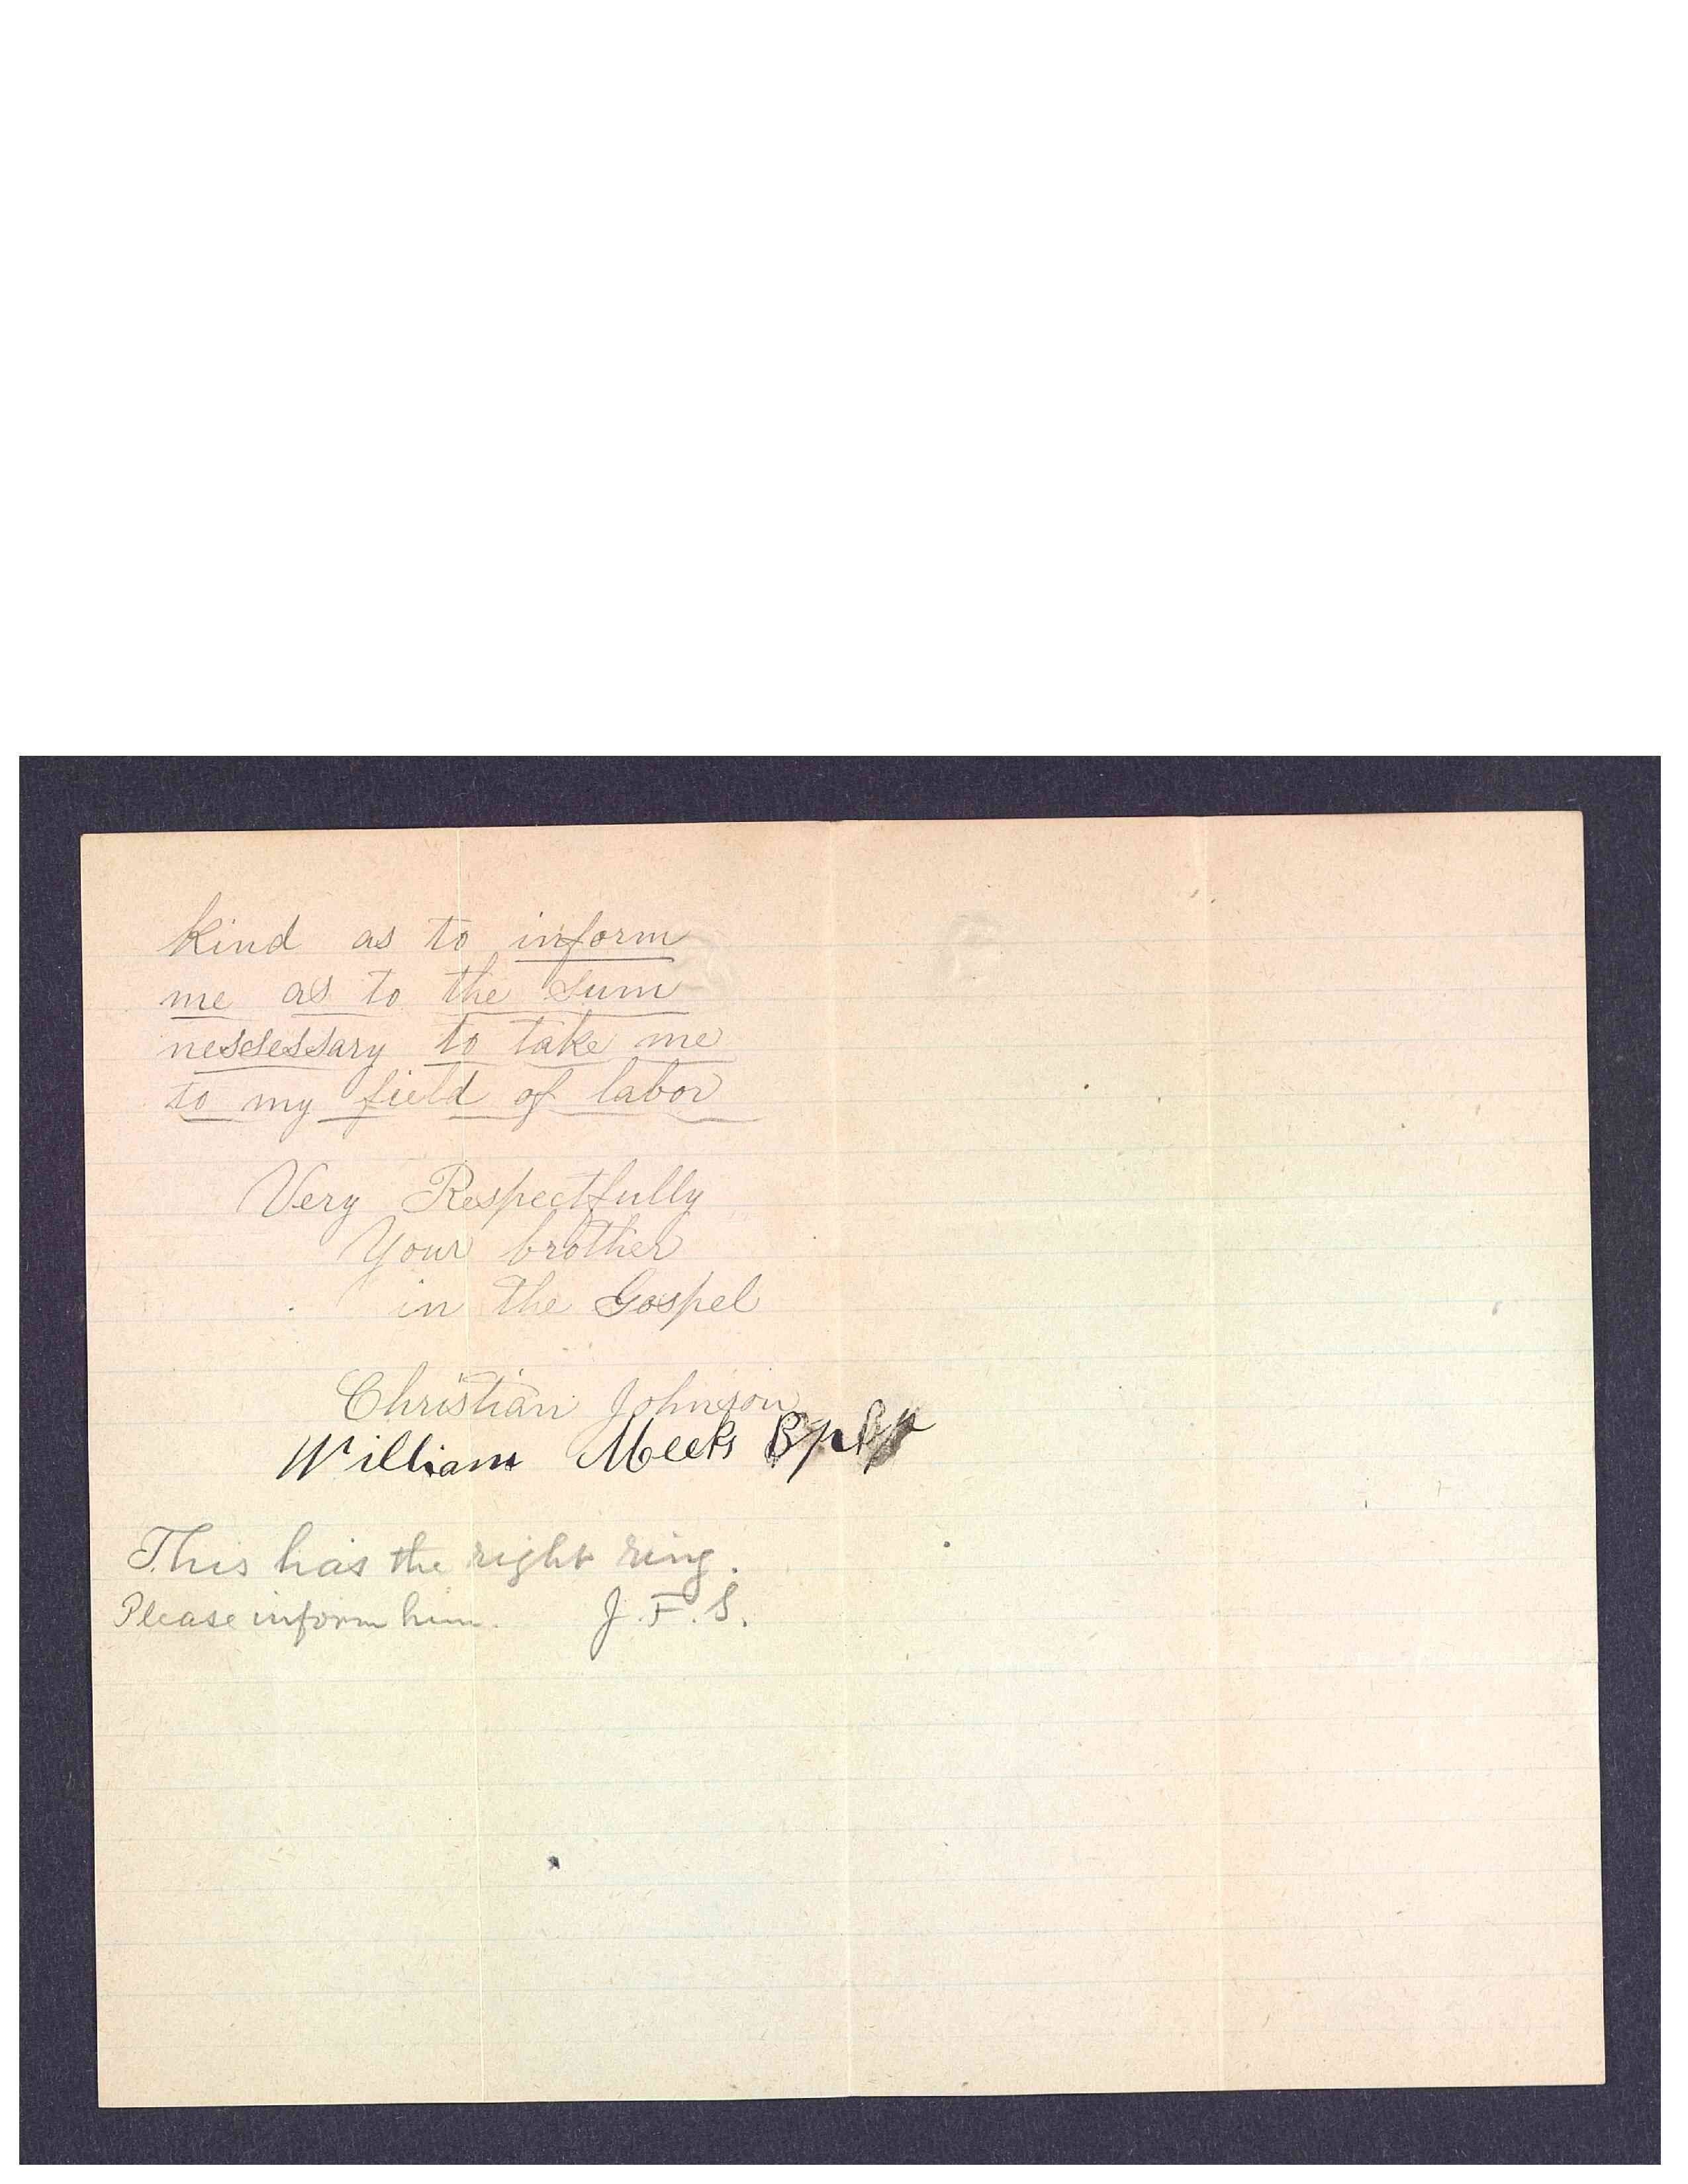 kind as to inform
me as to the sum
nescessary to take me
to my field of labor
Very Respectfully
Your brother
in the Gospel
Christian Johnson
William Meeks
This has the right ring.
Please inform him. J. F. S.